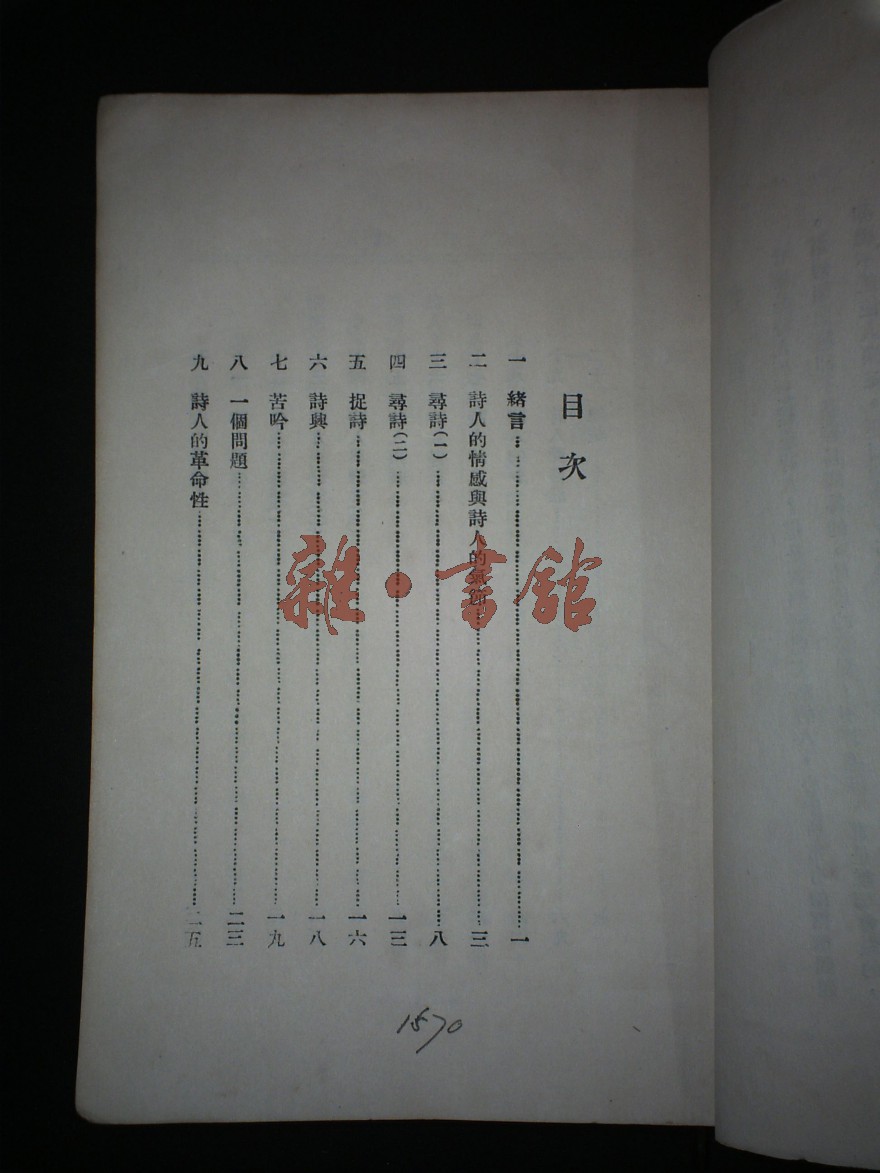 目次
一 緒言 一
二 詩人的情感與詩人的氣節 三
三 尋詩(一) 八
四 尋詩(二) 一三
五 捉詩 一六
六 詩興 一八
七 苦吟 一九
八 一個問題 二三
九 詩人的革命性 二五
雜·書館
1570